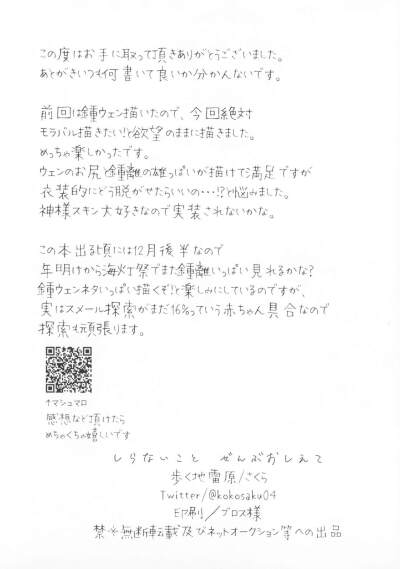 この度はお手に取って頂きありがとうございました。
あとがきいつも何書いて良いか分かんないです。
前回は鍾ウェン描いたので、今回絶対
モラバル描きたい!と欲望のままに描きました。
めっちゃ楽しかったです。
ウェンのお尻と鍾離の雄っぱいが描けて満足ですが
衣装的にどう脱がせたらいいの…!?と悩みました。
神様スキン大好きなので実装されないかな。
この本出る頃には12月後半なので
年明けから海灯祭でまた鍾離いっぱい見れるかな?
鍾ウェンネタいっぱい描くぞ!と楽しみにしているのですが、
実はスメール探索がまだ16%っていう赤ちゃん具合なので
探索も頑張ります。
↑マシュマロ
感想など頂けたら
めちゃくちゃ嬉しいです
しらないこと ぜんぶおしえて
歩く地雷原/さくら
Twitter/@kokosaku04
印刷/ブロス様
禁※無断転載及びネットオークション等への出品